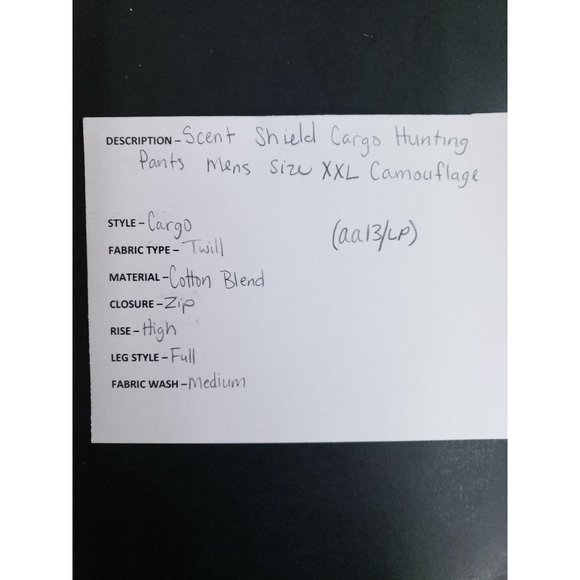 DESCRIPTION - Scent Shield Cargo Hunting
Pants Mens Size XXL Camouflage
STYLE - Cargo
(aa13/LP)
FABRIC TYPE - Twill
MATERIAL - Cotton Blend
CLOSURE - Zip
RISE - High
LEG STYLE - Full
FABRIC WASH - Medium